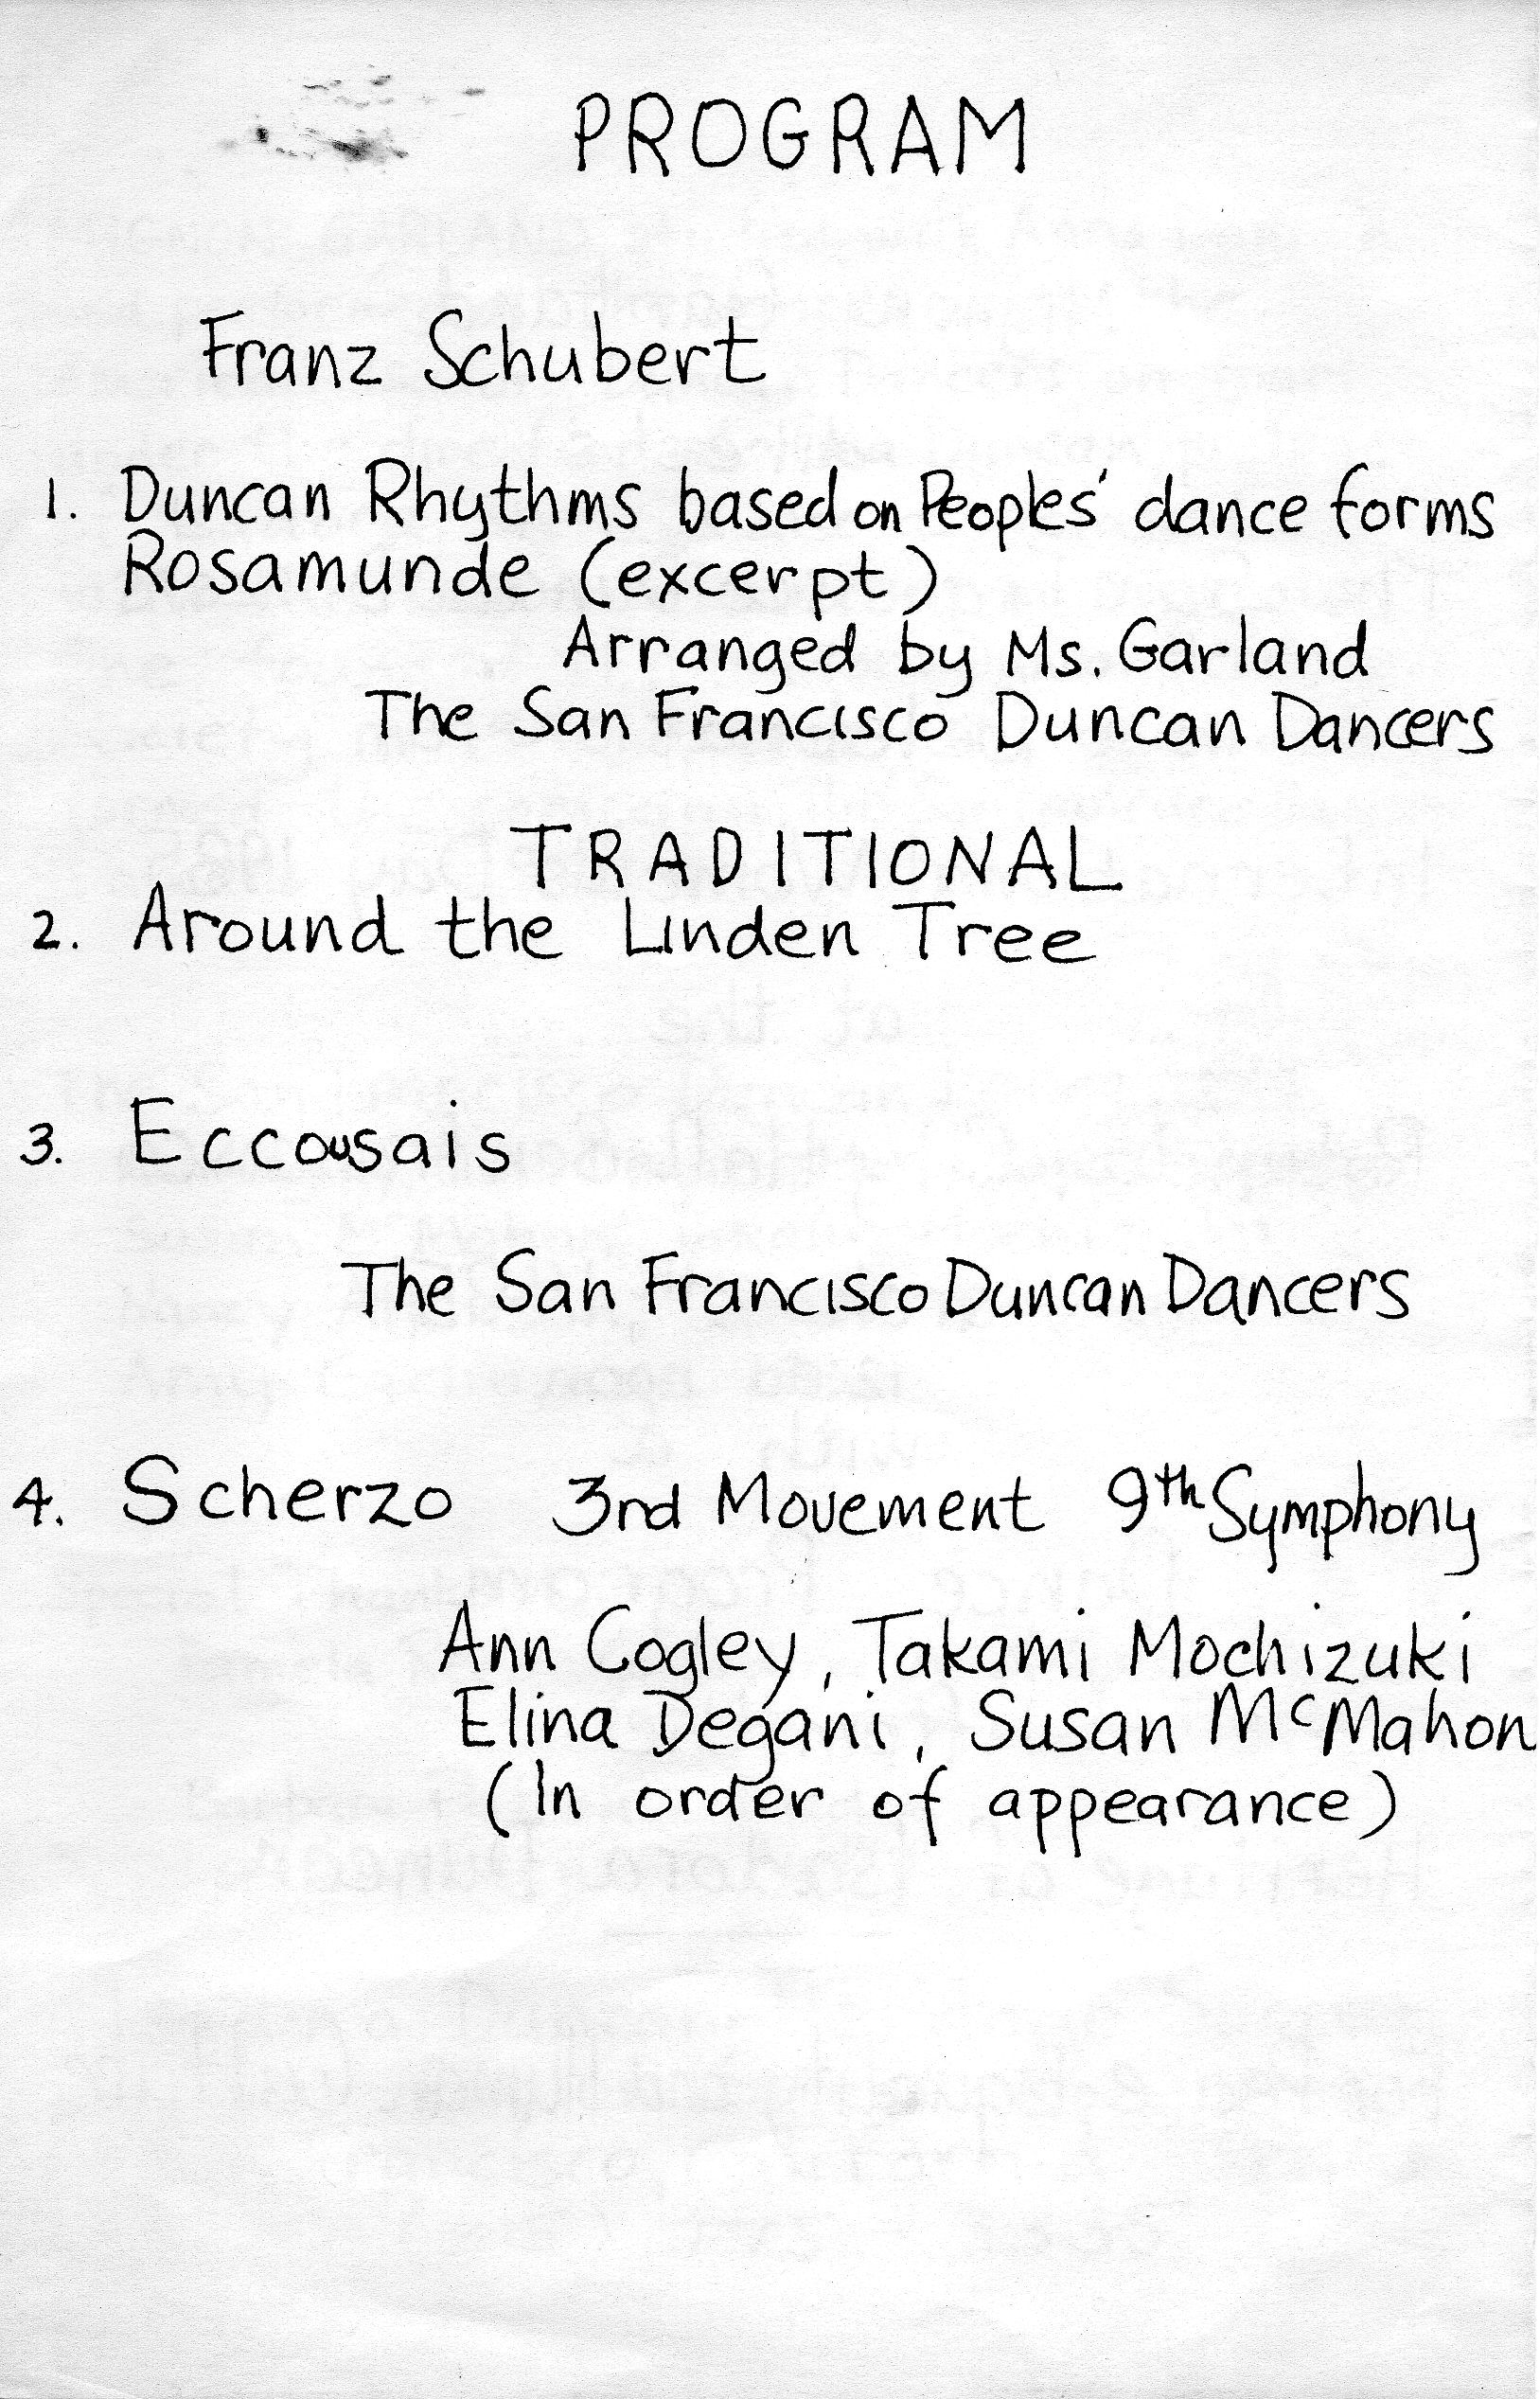 PROGRAM
Franz Schubert
1. Duncan Rhythms based on Peoples' dance forms
Rosamunde (excerpt)
Arranged by Ms. Garland
The San Francisco Duncan Dancers
TRADITIONAL
2. Around the Linden Tree
3. Eccousais
The San Francisco Duncan Dancers
4. Scherzo 3rd Movement 9th Symphony
Ann Cogley, Takami Mochizuki
Elina Degani, Susan McMahon
(In order of appearance)